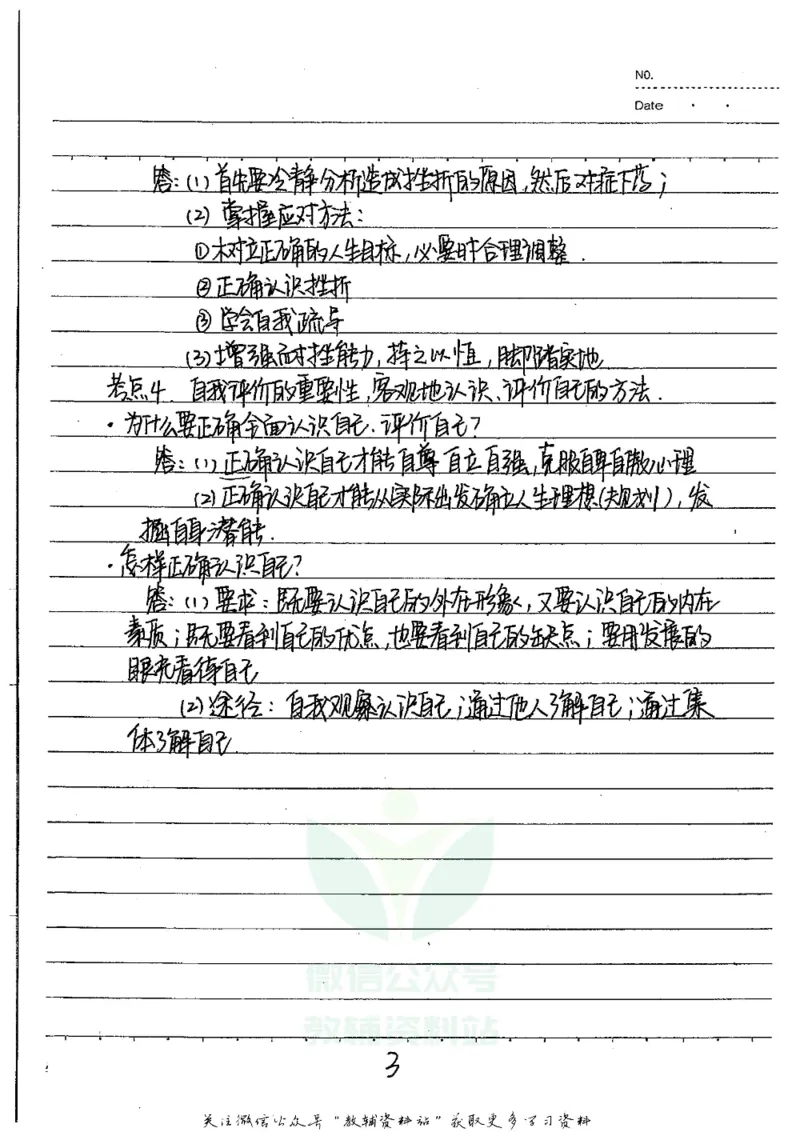 NO.
Date
答：(1)首先要冷静分析造成挫折的原因，然后对症下药；
(2) 掌握应对方法：
①树立正确的人生目标，必要时合理调整．
②正确认识挫折
③学会自我疏导
(3)增强耐挫能力，持之以恒，脚踏实地
考点4．自我评价的重要性，客观地认识、评价自己的方法．
·为什么要正确全面认识自己、评价自己？
答：(1)正确认识自己才能自尊自立自强，克服自卑自傲心理
(2)正确认识自己才能从实际出发确立人生理想(规划)，发
掘自身潜能．
·怎样正确认识自己？
答：(1)要求：既要认识自己的外在形象，又要认识自己的内在
素质；既要看到自己的优点，也要看到自己的缺点；要用发展的
眼光看待自己
(2)途径：自我观察认识自己；通过他人了解自己；通过集
体了解自己
微信公众号
教辅资料站
3
关注微信公众号"教辅资料站"获取更多学习资料